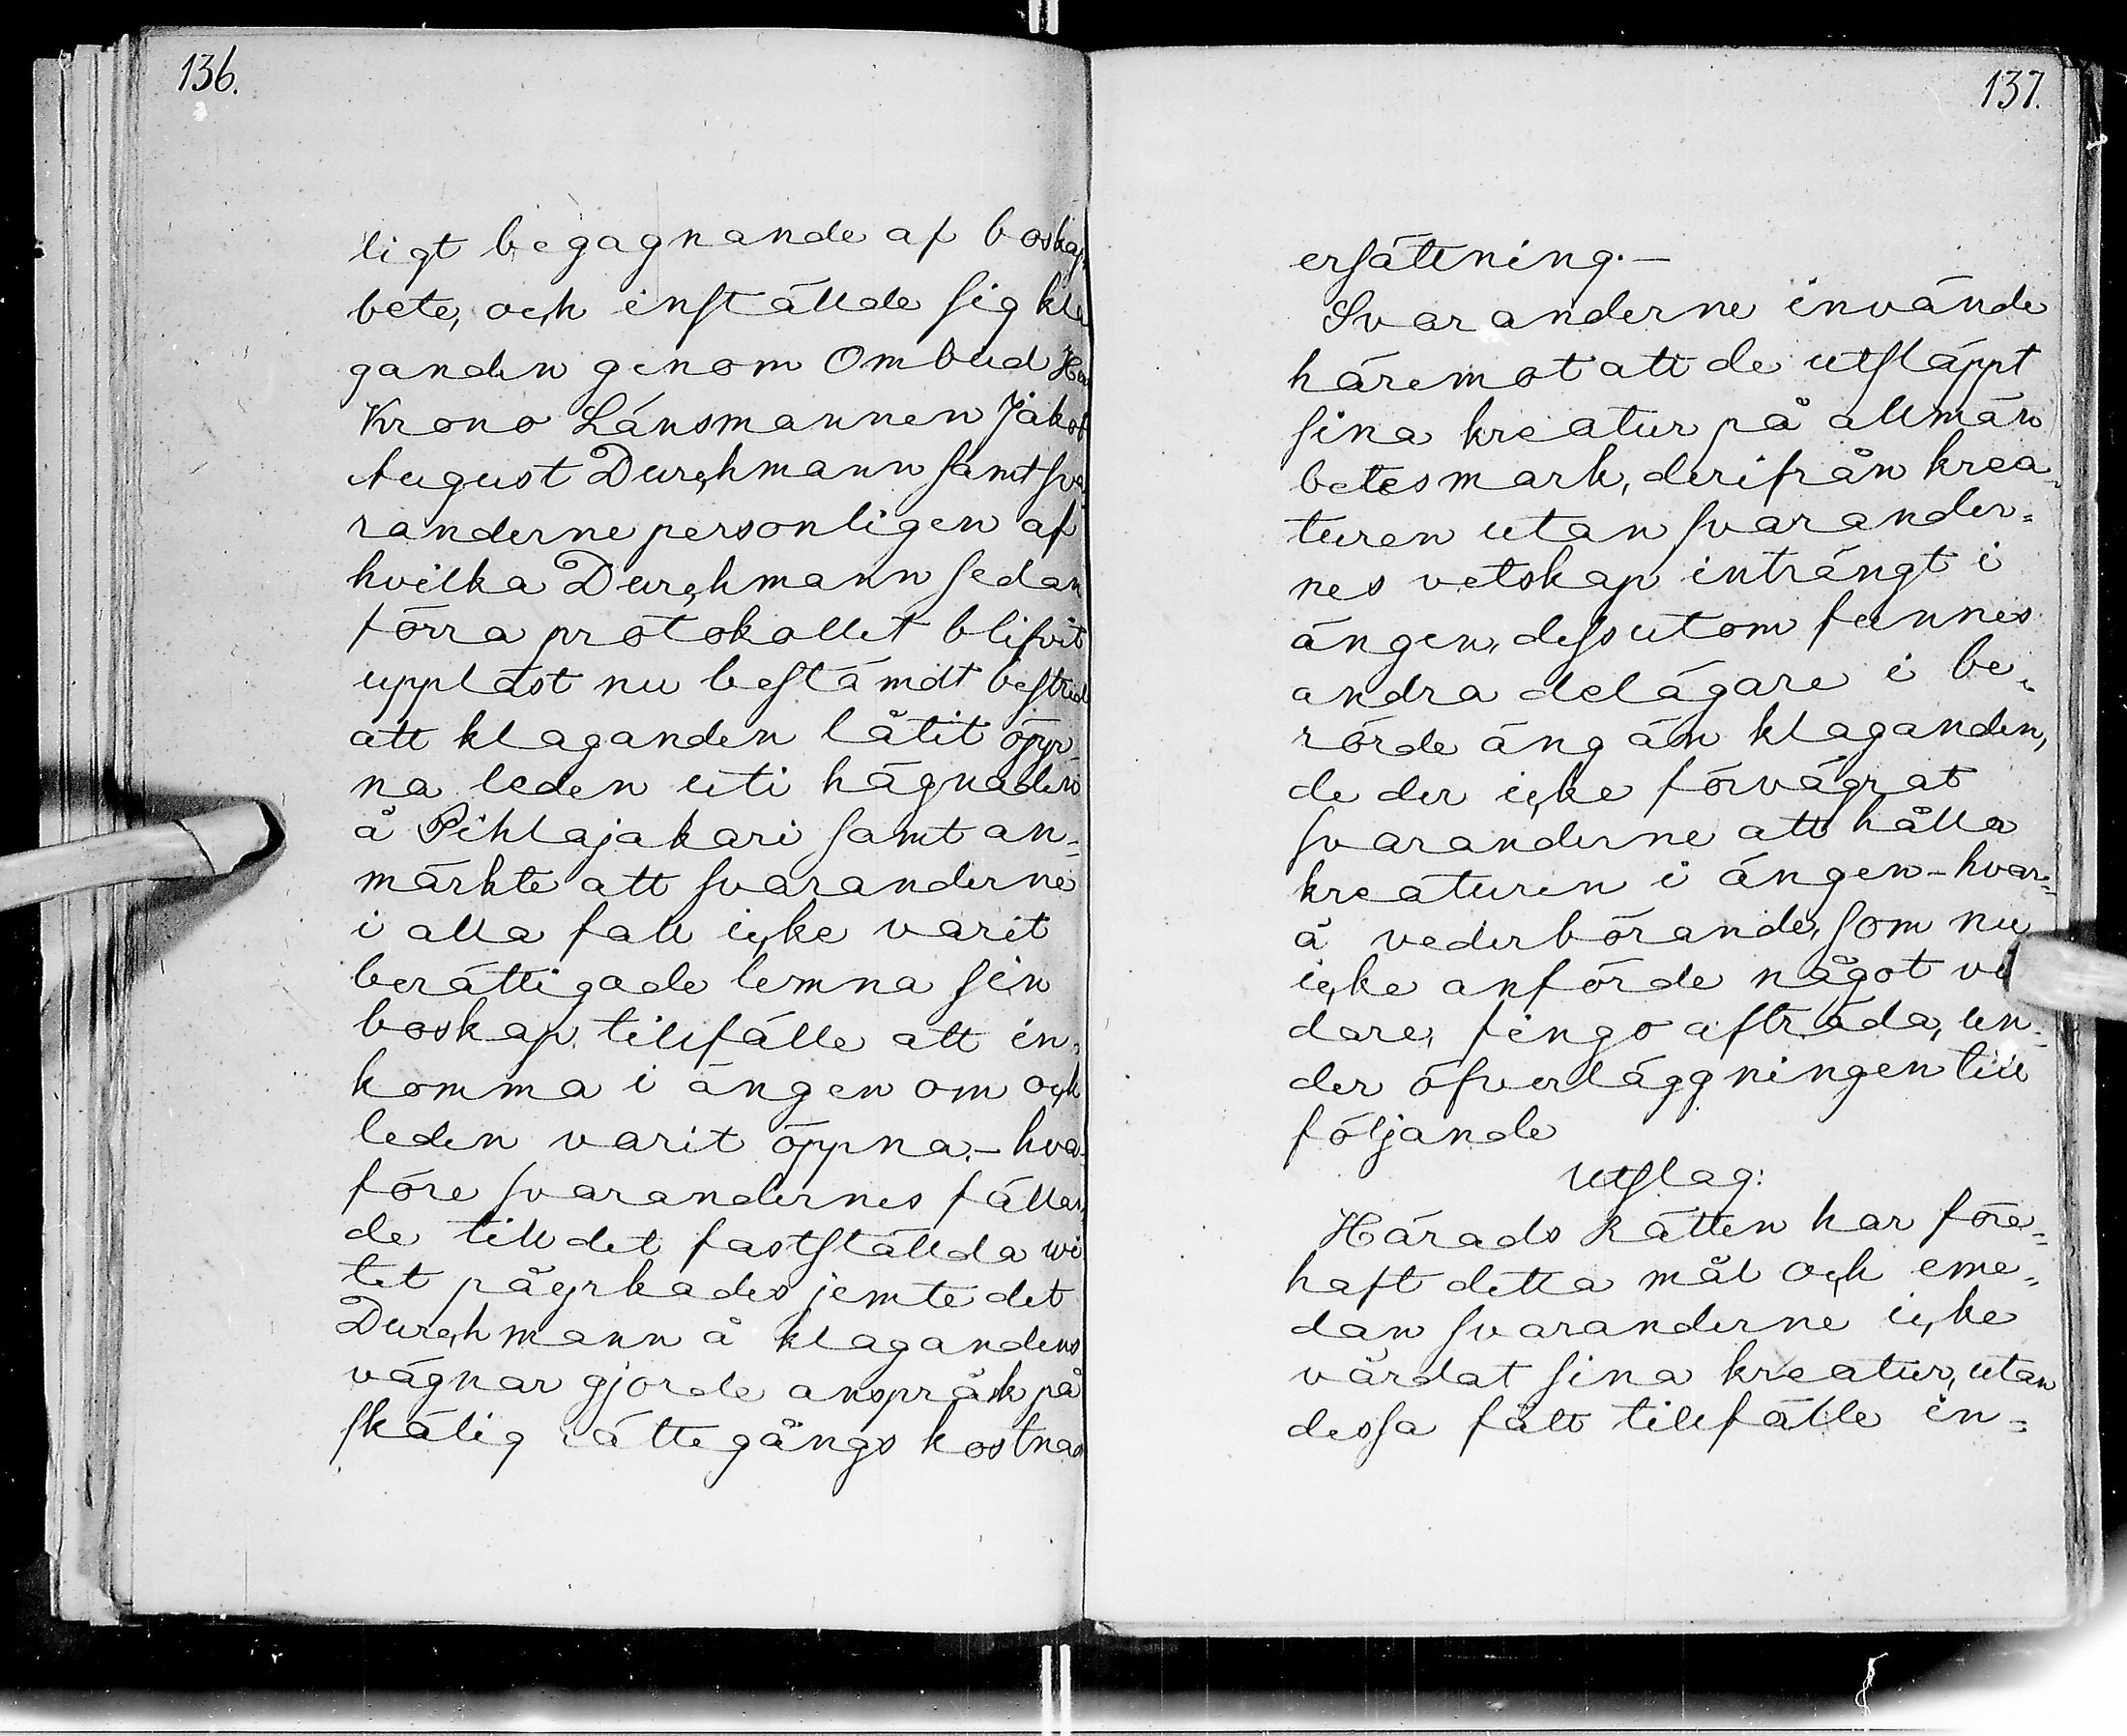 136.
ligt begagnande af boskaps
bete, och inställde sig kla
ganden genom Ombud Herr
Krono Länsmannen Jakob
August Durchmann samt sva
randerne personligen af
hvilka Durchmann sedan
förra protokollet blifvit
uppläst nu bestämdt bestred
att klaganden låtit öpp-
na leden uti hägnaden
å Pihlajakari samt an-
märkte att svaranderne
i alla fall icke varit
berättigade lemna sin
boskap tillfälle att in-
komma i ängen om och
leden varit öppna.- hva-
före svarandernes fällan-
de till det fastställda wi
tet påyrkades jemte det
Durchmann å klagandens
vägnar gjorde anspråk på
skälig rättegångs kostnad
137.
ersättning.-
Svaranderne invände
häremot att de utsläppt
sina kreatur på allmän
betesmark, derifrån krea-
turen utan svarander-
nes vetskap inträngt i
ängen, dessutom funnes
andra delägare i be-
rörde äng än klaganden,
de der icke förvägrat
svaranderne att hålla
kreaturen i ängen - hvar-
å vederbörande, som nu
icke anförde något vi
dare, fingo afträda, un-
der öfverläggningen till
följande
Utslag:
Härads Rätten har före-
haft detta mål och eme-
dan svaranderne icke
vårdat sina kreatur, utan
dessa fått tillfälle in-